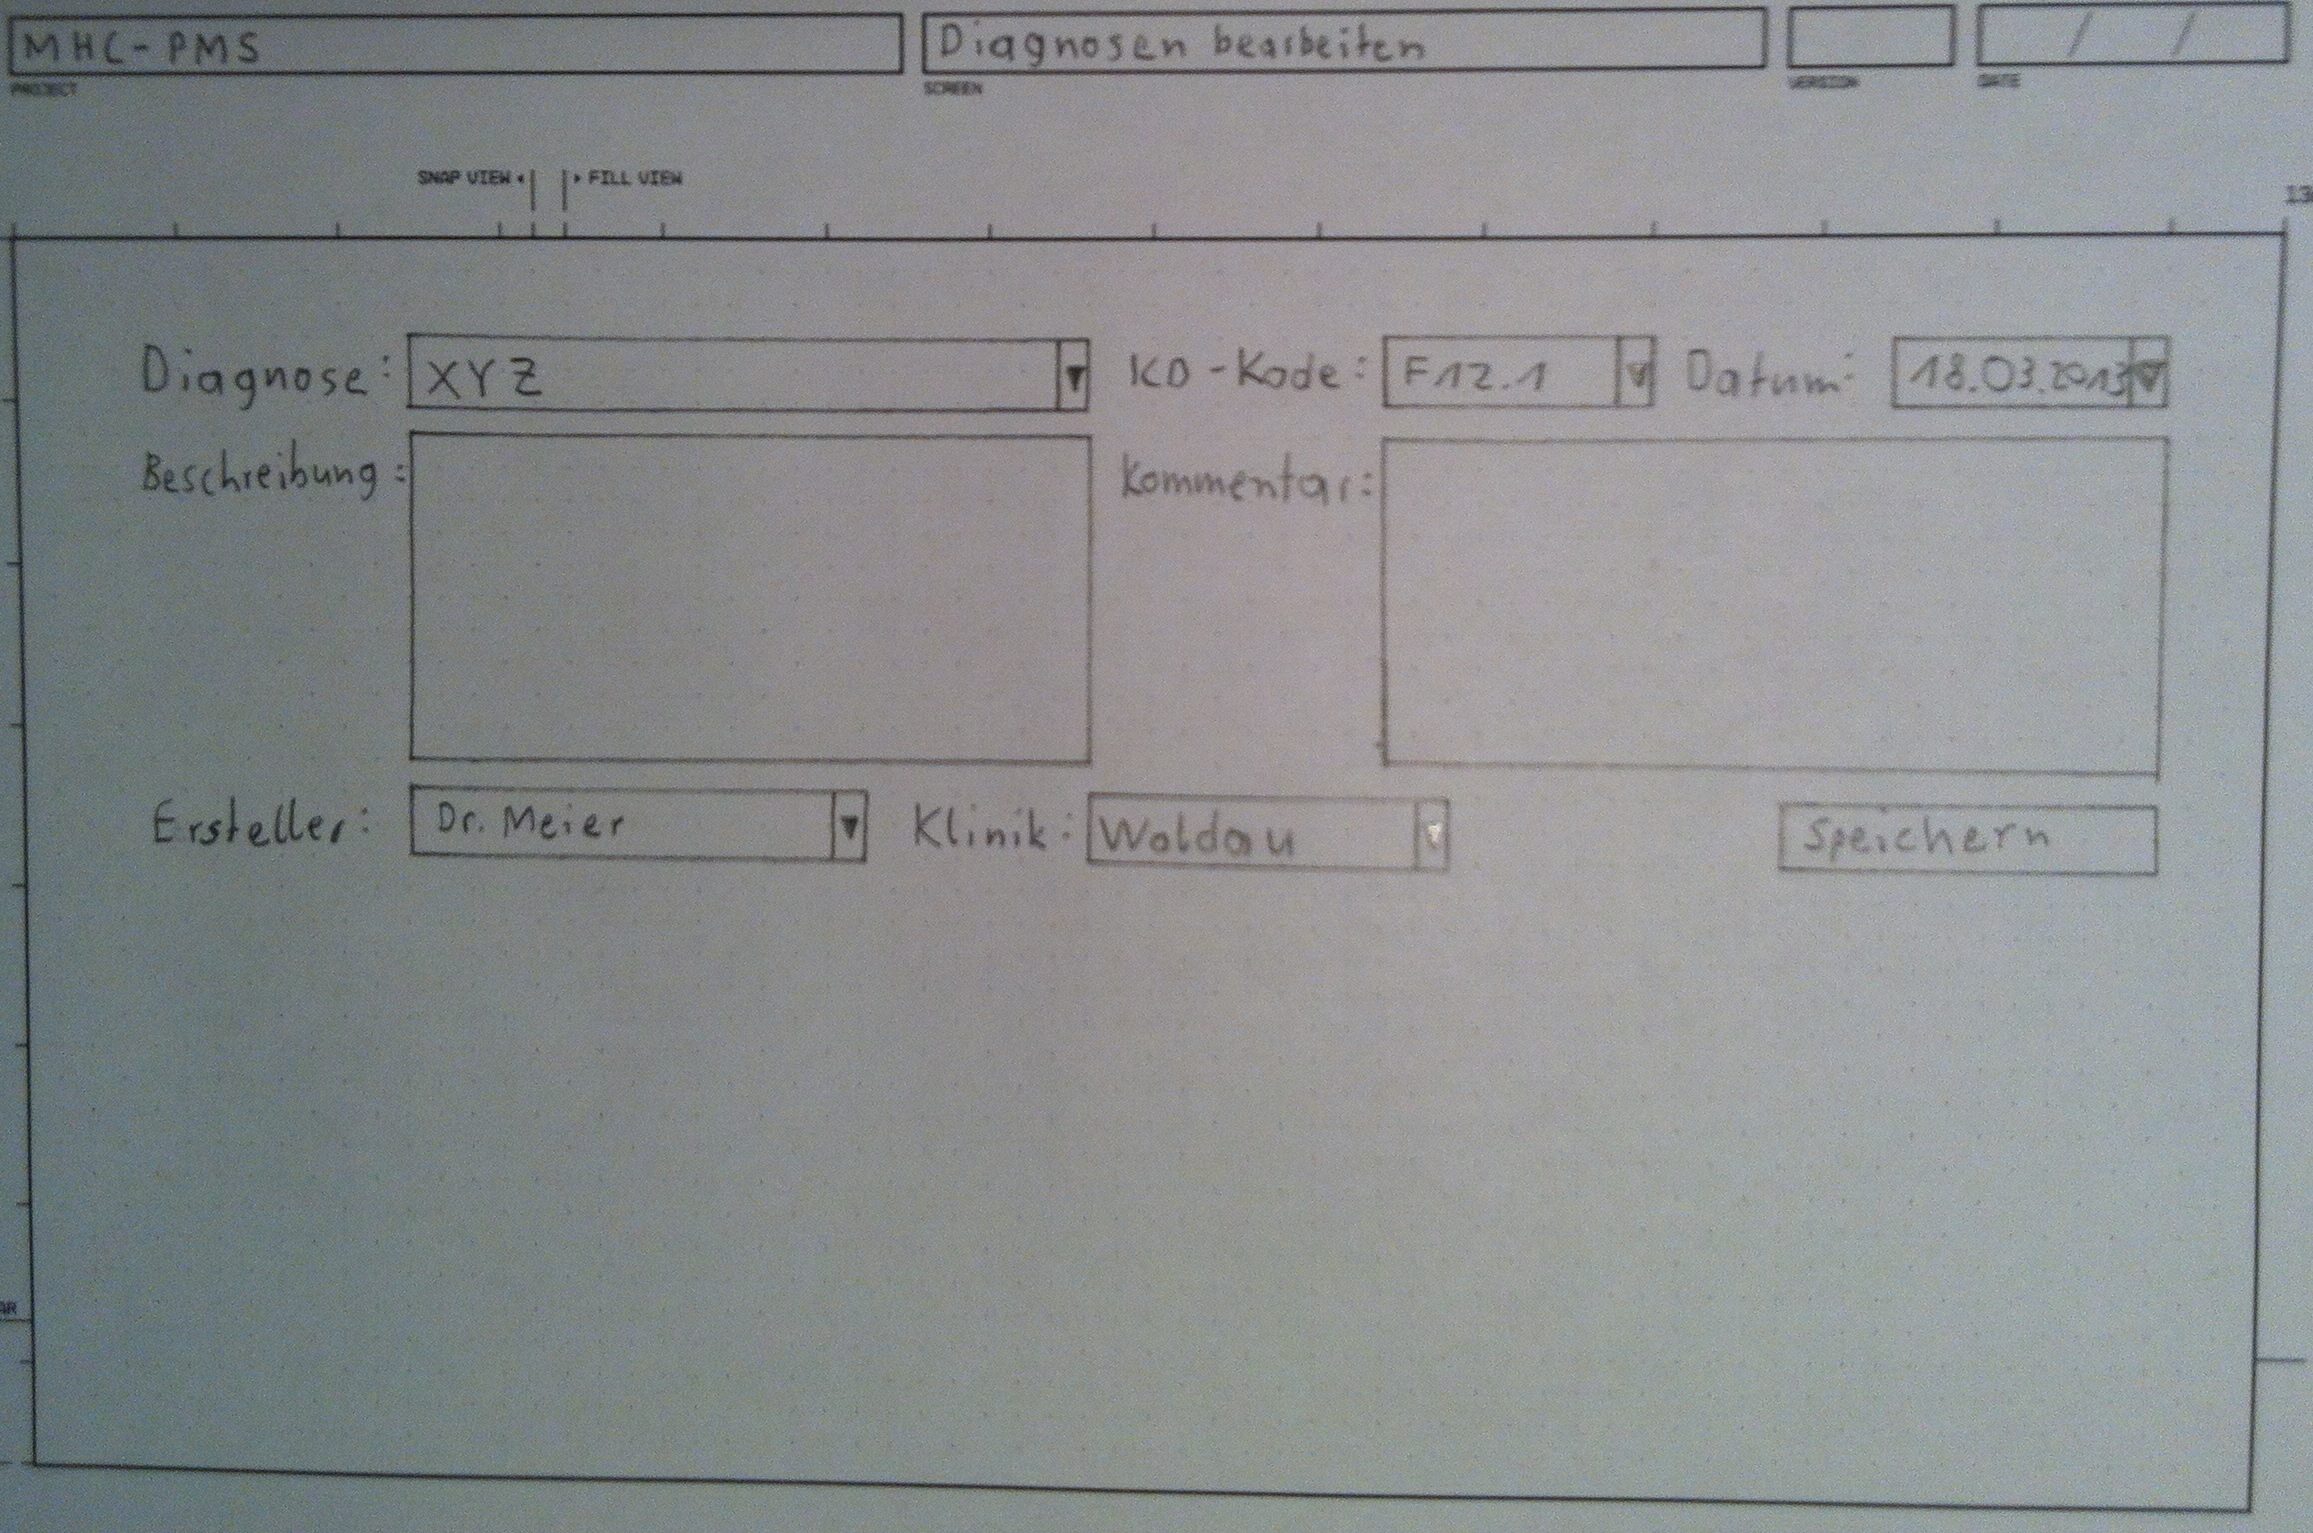 MHC-PMS
Diagnosen bearbeiten
/ /
PROJECT
SCREEN
VERSION
DATE
SNAP VIEW
FILL VIEW
13
Diagnose: XYZ
ICD-Kode: F12.1
Datum: 18.03.2013
Beschreibung:
Kommentar:
Ersteller: Dr. Meier
Klinik: Waldau
Speichern
AR